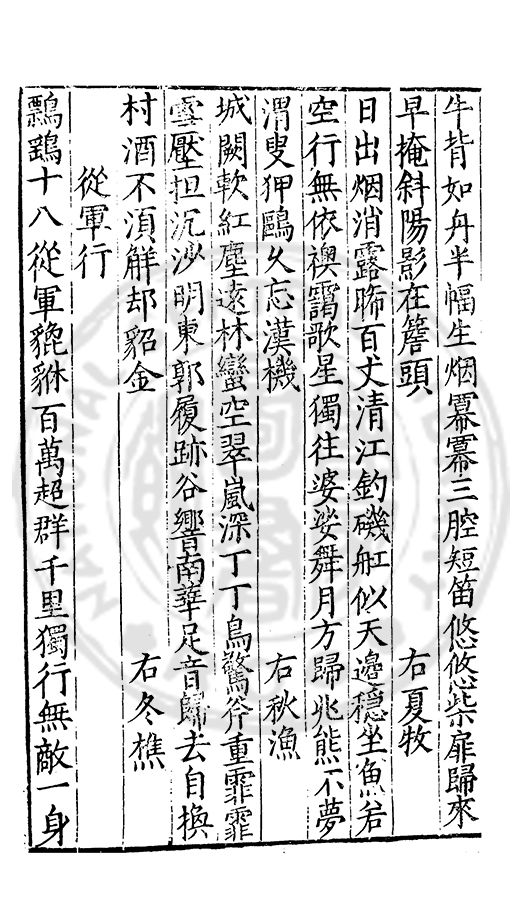 牛背如舟半幅生烟冪冪三腔短笛悠悠柴扉歸來
早掩斜陽影在簷頭　右夏牧
日出烟消露晞百丈清江釣磯舡似天邊穩坐魚若
空行無依襖靄歌星獨往婆娑舞月方歸兆熊不夢
渭叟狎鷗久忘漢機　右秋漁
城闕軟紅塵遠林巒空翠嵐深丁丁鳥驚斧重霏霏
雪壓担沉沙明東郭履跡谷響南華足音歸去自換
村酒不須觧却貂金　右冬樵
從軍行
鸘鵶十八從軍貔貅百萬超群千里獨行無敵一身